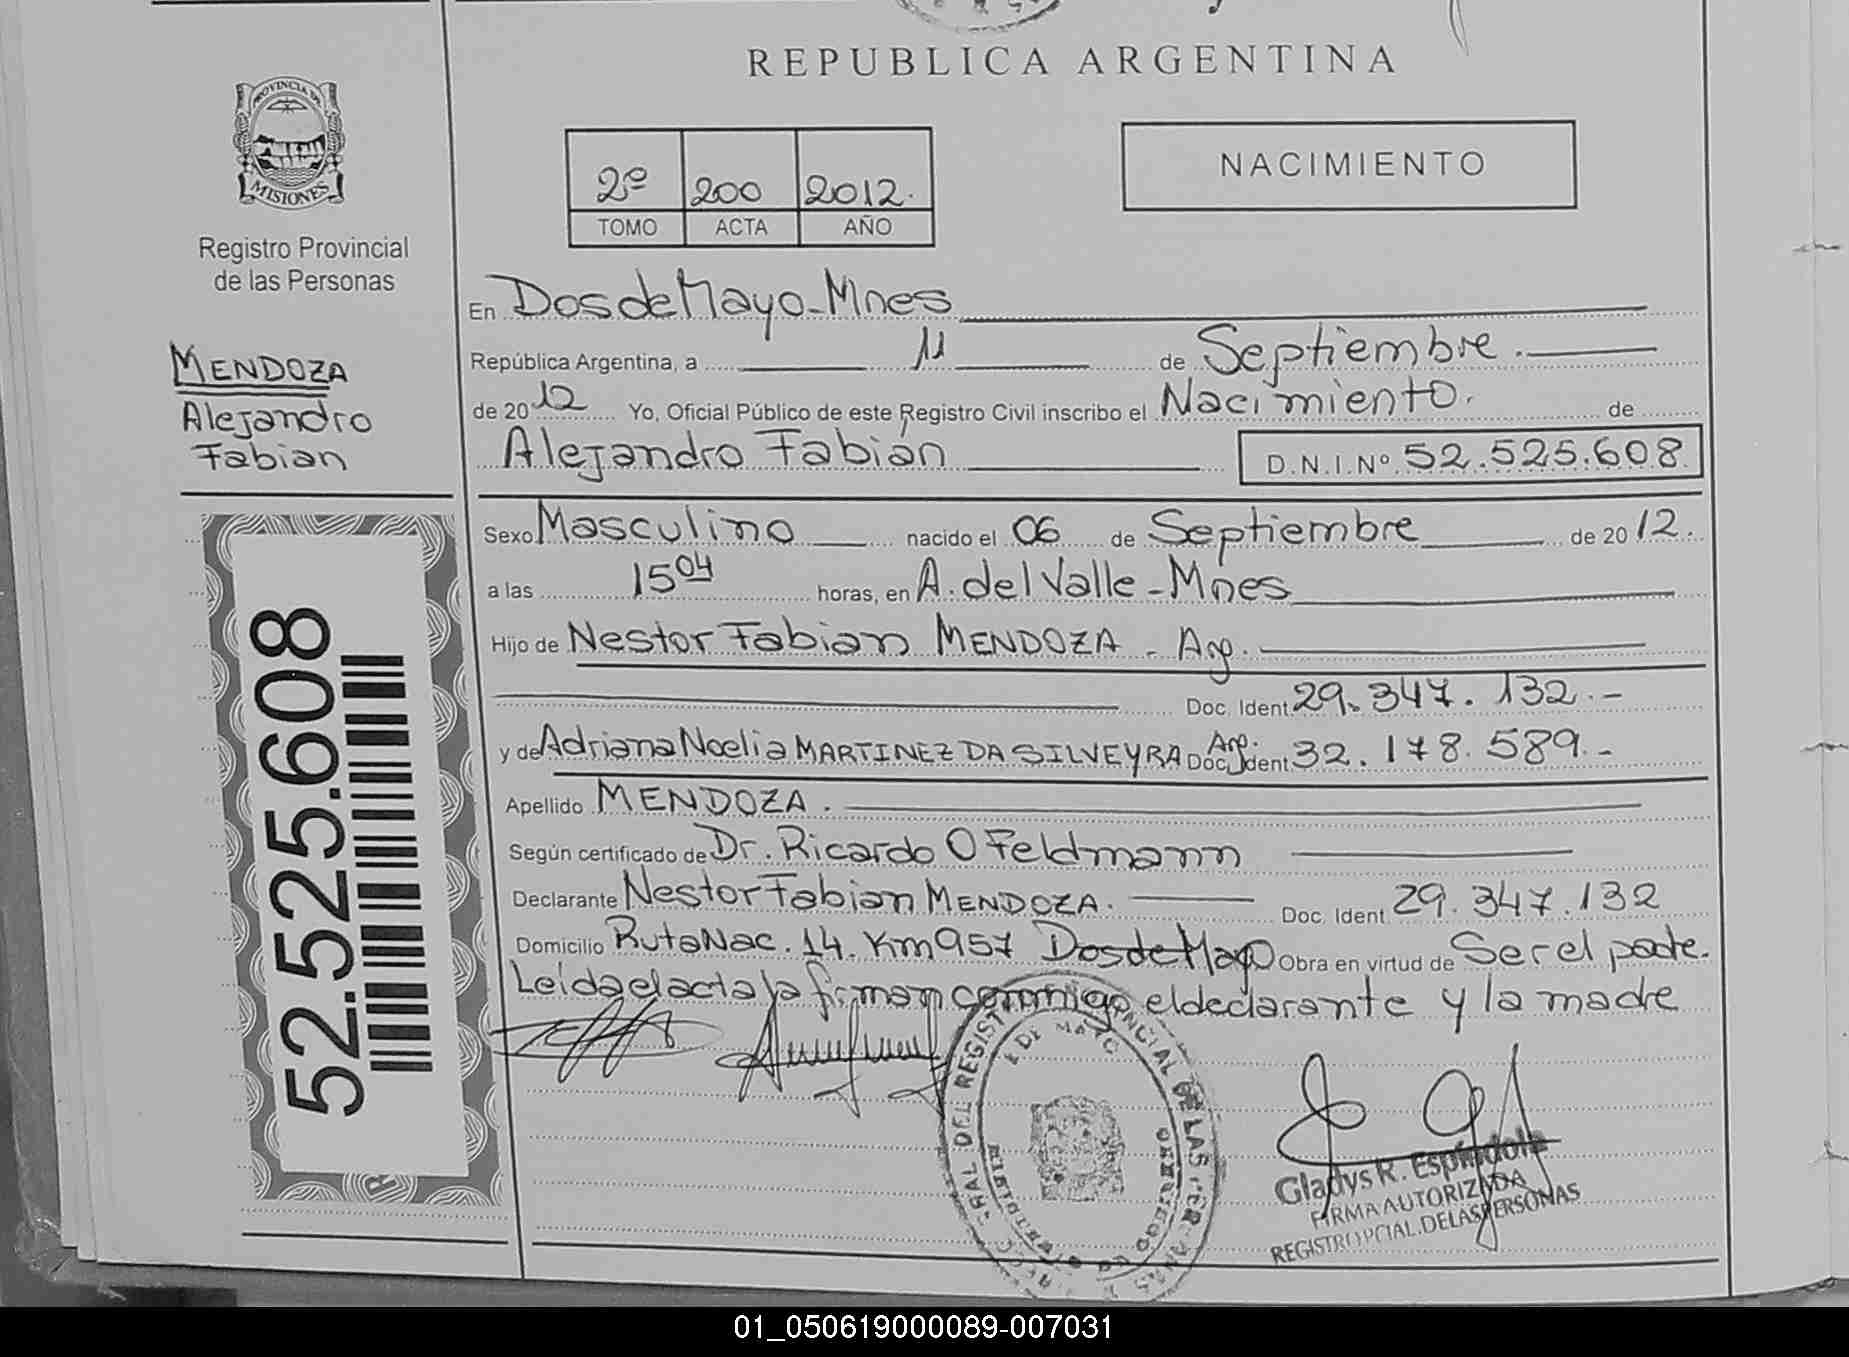 REPUBLICA ARGENTINA
PROVINCIA DE
MISIONES
Registro Provincial
de las Personas
MENDOZA
Alejandro
Fabian
2º 200 2012.
TOMO ACTA AÑO
NACIMIENTO
En Dos de Mayo - Mnes
República Argentina, a 11 de Septiembre.
de 2012 Yo, Oficial Público de este Registro Civil inscribo el Nacimiento. de
Alejandro Fabián D.N.I.Nº 52.525.608
Sexo Masculino nacido el 06 de Septiembre de 2012.
a las 15 04 horas, en A. del Valle - Mnes
Hijo de Nestor Fabian MENDOZA - Arg.
Doc. Ident. 29.347.132.-
y de Adriana Noelia MARTINEZ DA SILVEYRA Arg. Doc. Ident. 32.178.589.-
Apellido MENDOZA.
Según certificado de Dr. Ricardo O Feldmann
Declarante Nestor Fabian MENDOZA. Doc. Ident. 29.347.132
Domicilio Ruta Nac. 14. Km 957 Dos de Mayo Obra en virtud de Ser el padre.
Leída el acta la firman conmigo el declarante y la madre
52.525.608
Gladys R. Espíndola
FIRMA AUTORIZADA
REGISTRO PCIAL. DE LAS PERSONAS
01_050619000089-007031